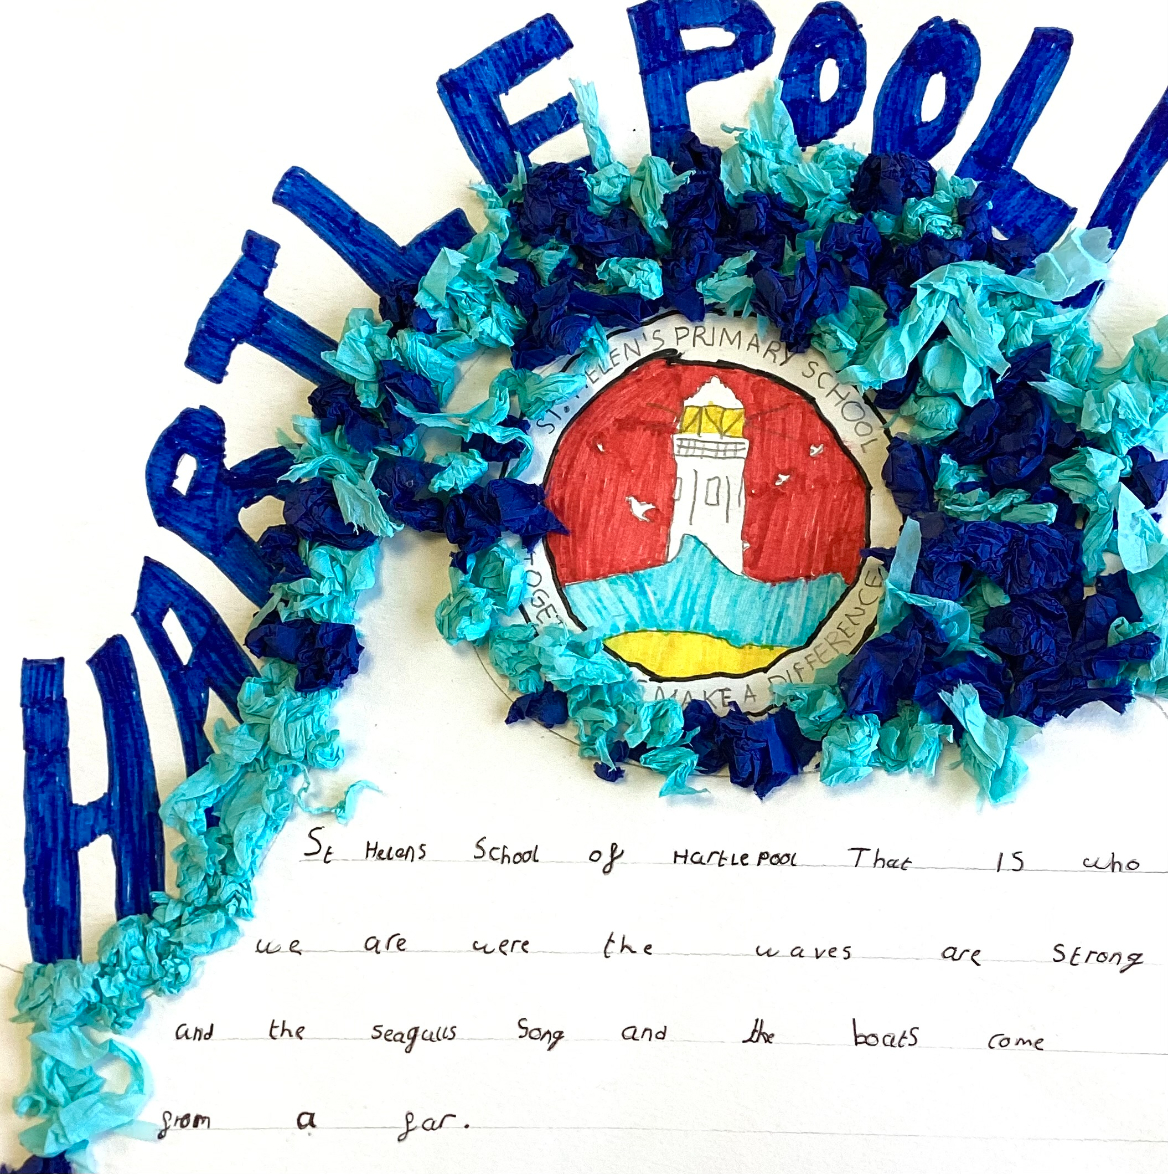 HARTLEPOOL
ST. ELEN'S PRIMARY SCHOOL
TOGE MAKE A DIFFERENCE
St Helens School of Hartlepool That is who
we are were the waves are strong
and the seagulls Song and the boats come
from a far.